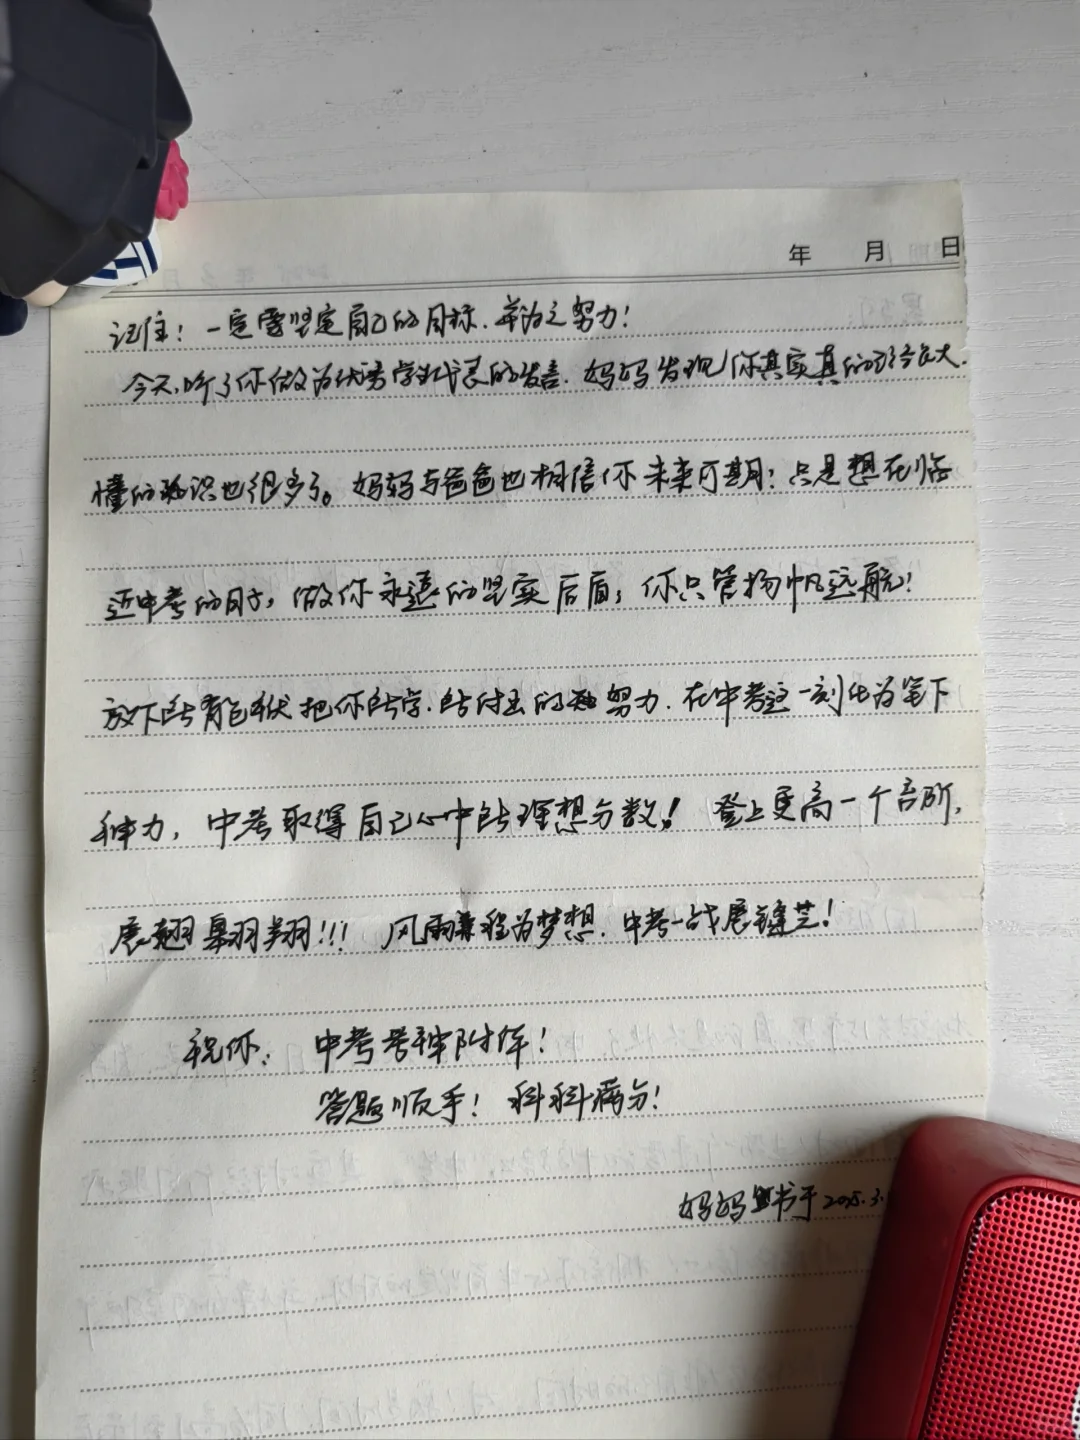 年 月 日
记住！一定要坚定自己的目标．并为之努力！
今天，听了你做为优秀学生代表的发言．妈妈发现你其实真的已经长大．
懂的知识也很多了。妈妈与爸爸也相信你未来可期；只是想在临
近中考的日子，做你永远的坚实后盾；你只管扬帆远航！
放下所有包袱把你所学．所付出的努力．在中考这一刻化为笔下
神力，中考取得自己心中的理想分数！登上更高一个台阶，
展翅翱翔！！！ 风雨兼程为梦想．中考一战展锋芒！
祝你： 中考考神附体！
答题顺手！ 科科满分！
妈妈书于2025.3.